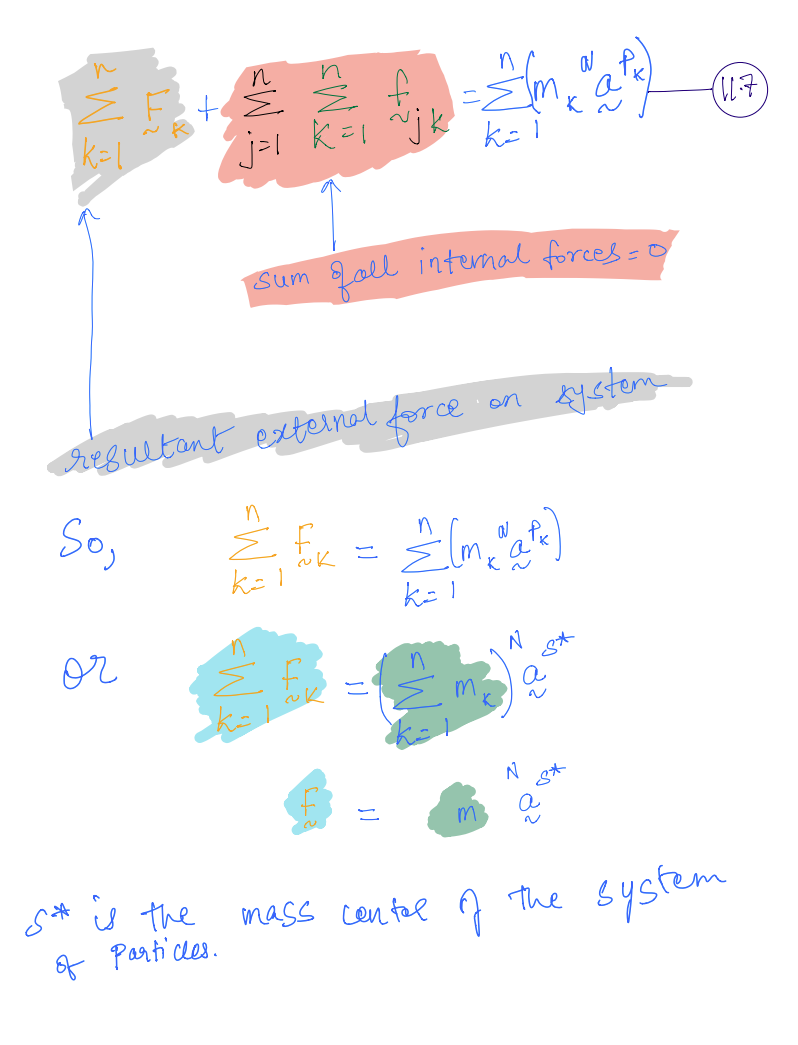 $\sum_{k=1}^{n} \underset{\sim}{F}_k + \sum_{j=1}^{n} \sum_{k=1}^{n} \underset{\sim}{f}_{jk} = \sum_{k=1}^{n} \left( m_k {}^{N}\underset{\sim}{a}^{P_k} \right)$ — 11.7
sum of all internal forces = 0
resultant external force on system
So, $\sum_{k=1}^{n} \underset{\sim}{F}_k = \sum_{k=1}^{n} \left( m_k {}^{N}\underset{\sim}{a}^{P_k} \right)$
or $\sum_{k=1}^{n} \underset{\sim}{F}_k = \left( \sum_{k=1}^{n} m_k \right) {}^{N}\underset{\sim}{a}^{S^*}$
$\underset{\sim}{F} = m \, {}^{N}\underset{\sim}{a}^{S^*}$
S* is the mass center of the system
of particles.